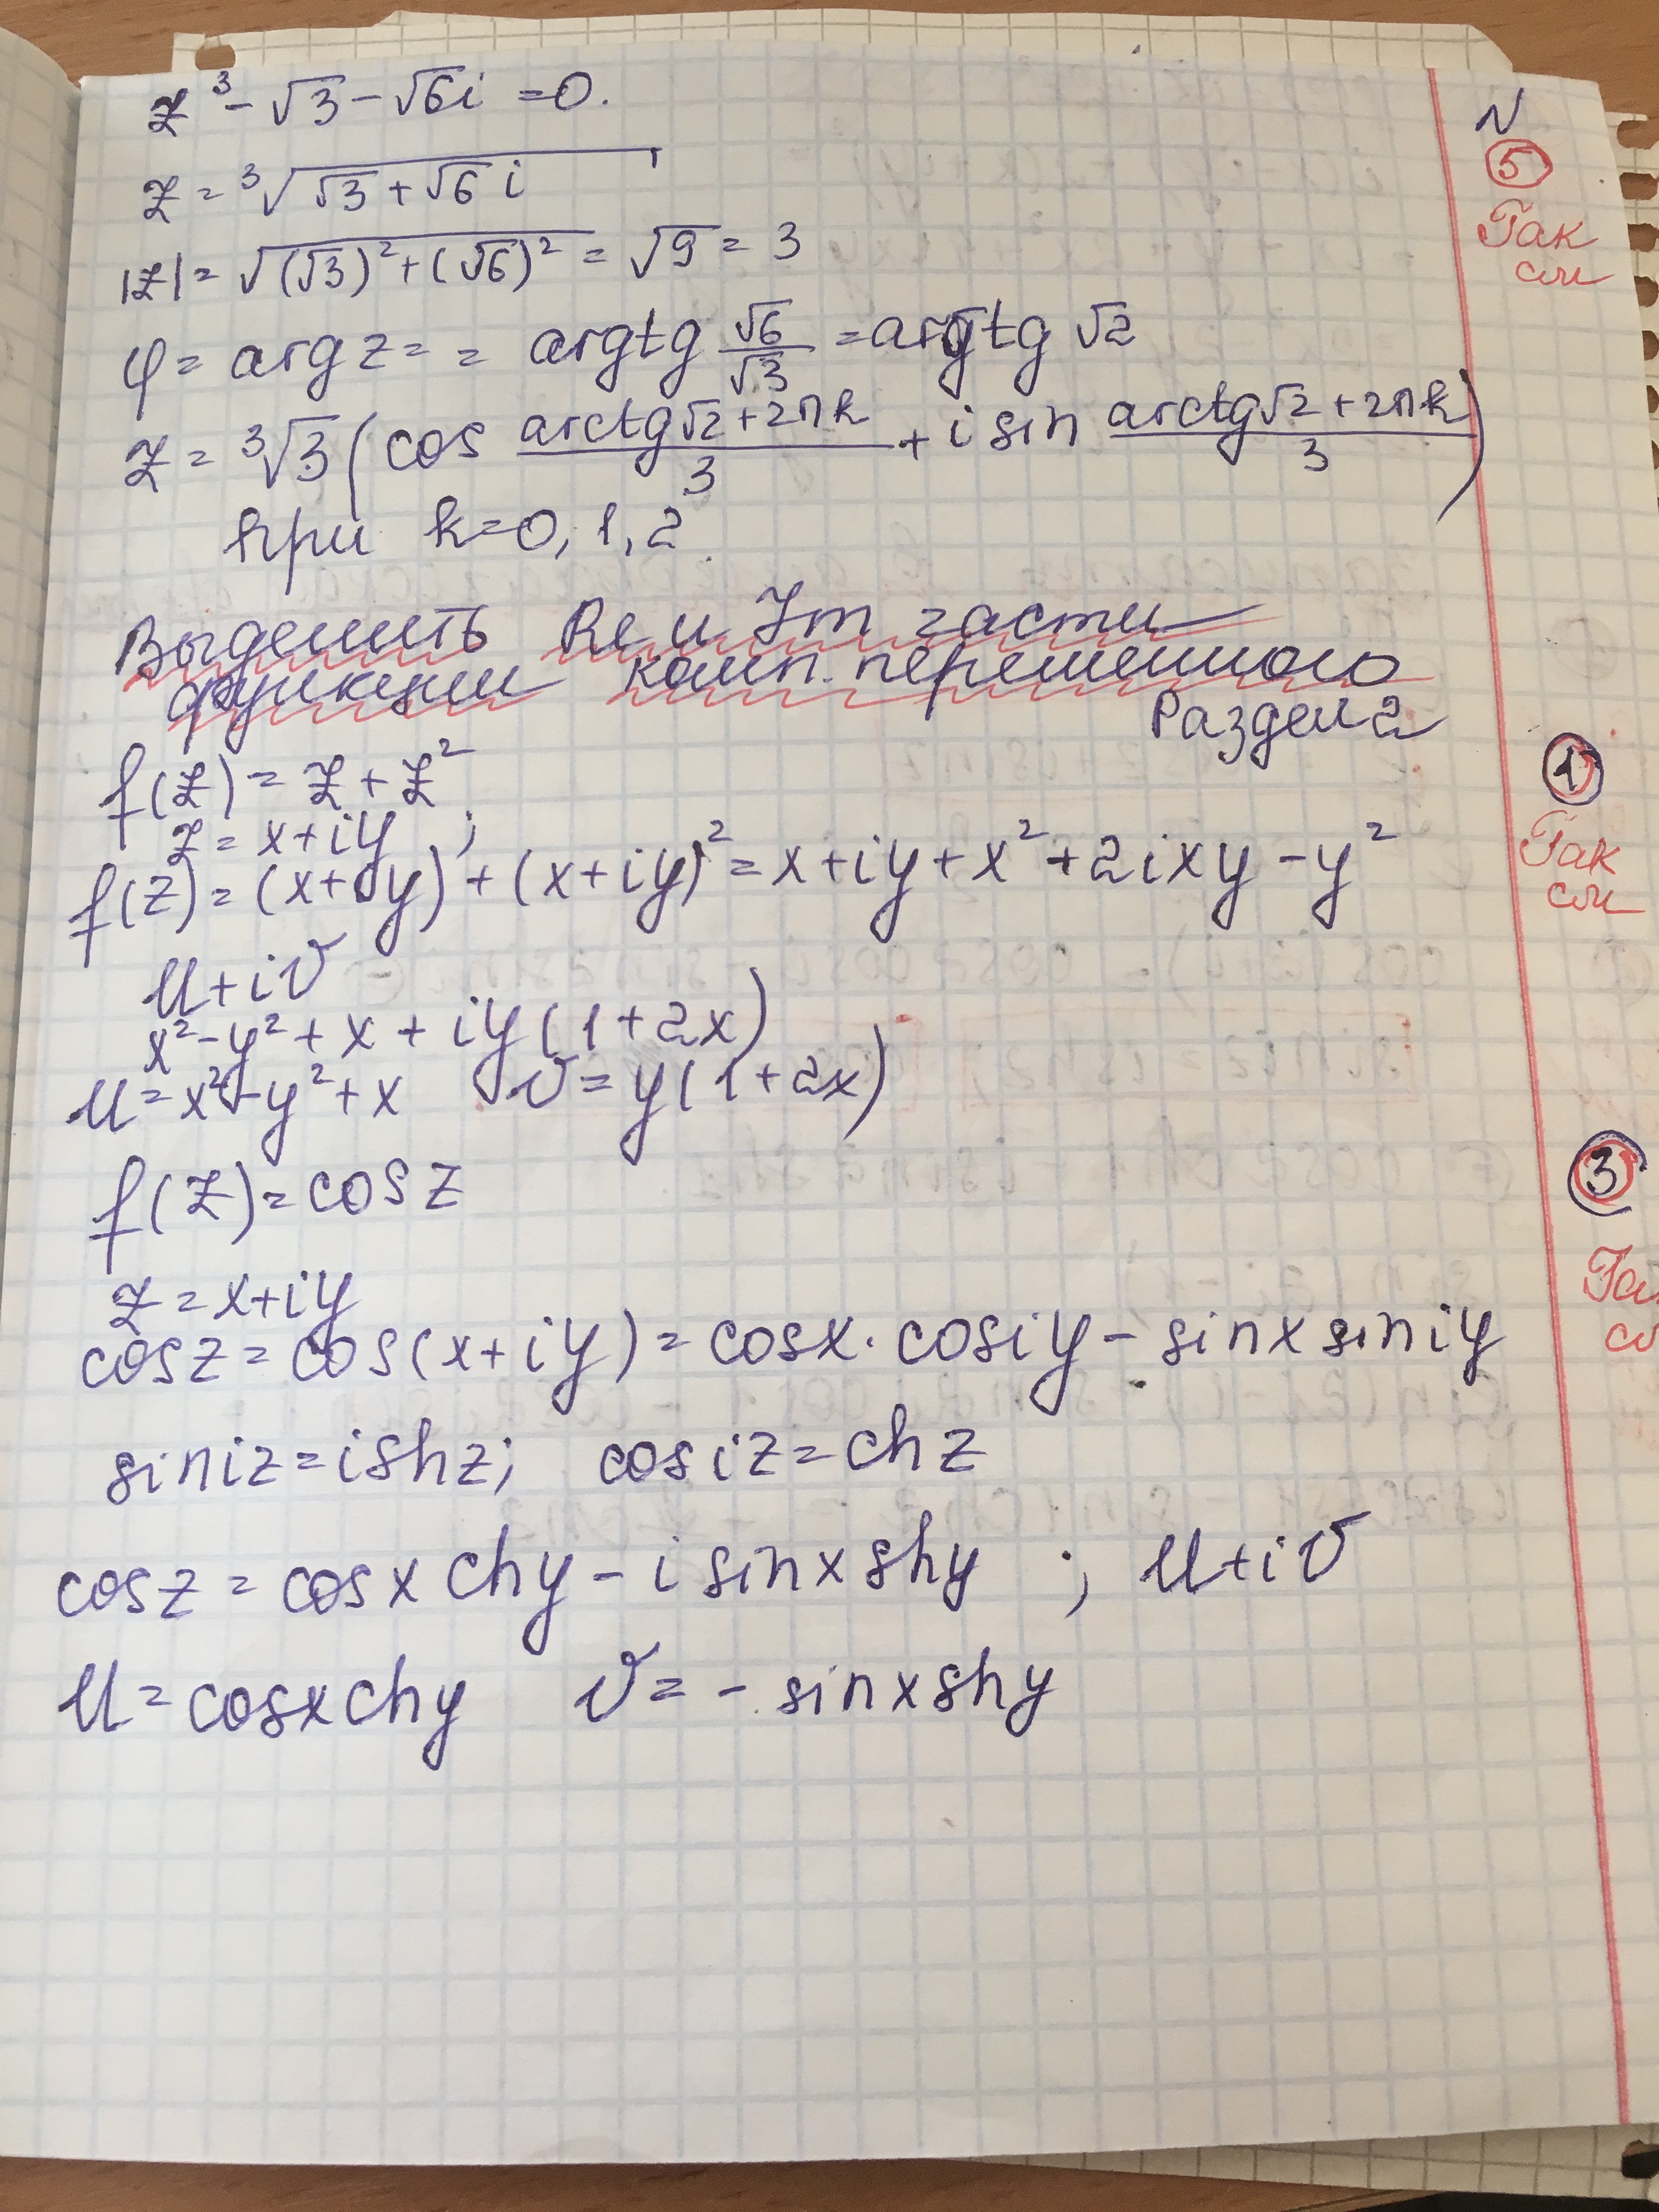 z³ - √3 - √6i = 0.
N
5
z = ³√(√3 + √6 i)
Так
сли
|z| = √((√3)² + (√6)²) = √9 = 3
φ = arg z = = argtg √6/√3 = argtg √2
z = ³√3 (cos (arctg√2 + 2πk)/3 + i sin (arctg√2 + 2πk)/3)
при k = 0, 1, 2.
Выделить Re и Im части
функции комп. переменного
Раздел 2
1
f(z) = z + z²
z = x + iy ;
Так
сли
f(z) = (x + iy) + (x + iy)² = x + iy + x² + 2ixy - y²
u + iv
x² - y² + x + iy(1 + 2x)
u = x² - y² + x v = y(1 + 2x)
3
f(z) = cos z
z = x + iy
cos z = cos(x + iy) = cosx · cosiy - sinx siniy
siniz = ishz; cosiz = chz
cosz = cosx chy - i sinx shy ; u + iv
u = cosx chy v = - sinx shy